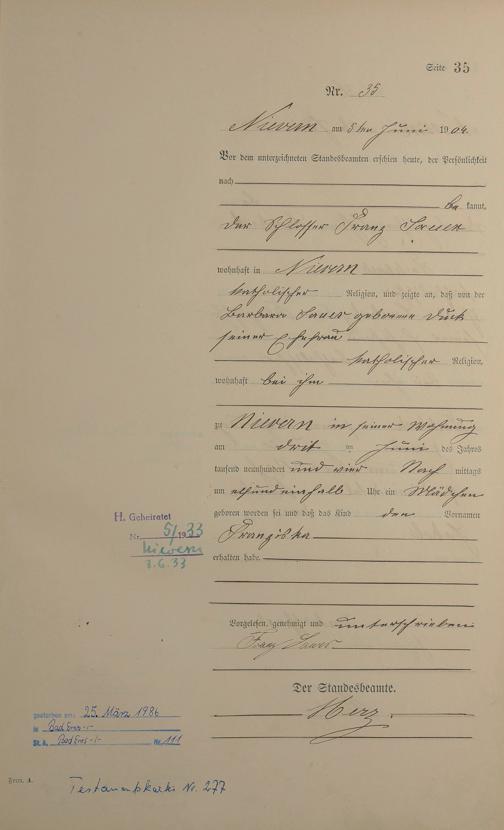 Seite 35
Nr. 35
Nievern am 5ten Juni 1904.
Vor dem unterzeichneten Standesbeamten erschien heute, der Persönlichkeit
nach
be kannt,
der Schlosser Franz Sauer
wohnhaft in Nievern
katholischer Religion, und zeigte an, daß von der
Barbara Sauer geborene Duck
seiner Ehefrau
katholischer Religion,
wohnhaft bei ihm
zu Nievern in seiner Wohnung
am drit en Juni des Jahres
tausend neunhundert und vier Nach mittags
um elfundeinhalb Uhr ein Mädchen
geboren worden sei und daß das Kind den Vornamen
Franziska
erhalten habe.
H. Geheiratet
Nr. 5/1933
Nievern
3.6.33
Vorgelesen, genehmigt und unterschrieben
Franz Sauer
Der Standesbeamte.
Herz
gestorben am: 25. März 1986
in Bad Ems
St.A. Bad Ems Nr. 111
Form. A.
Nr. 277